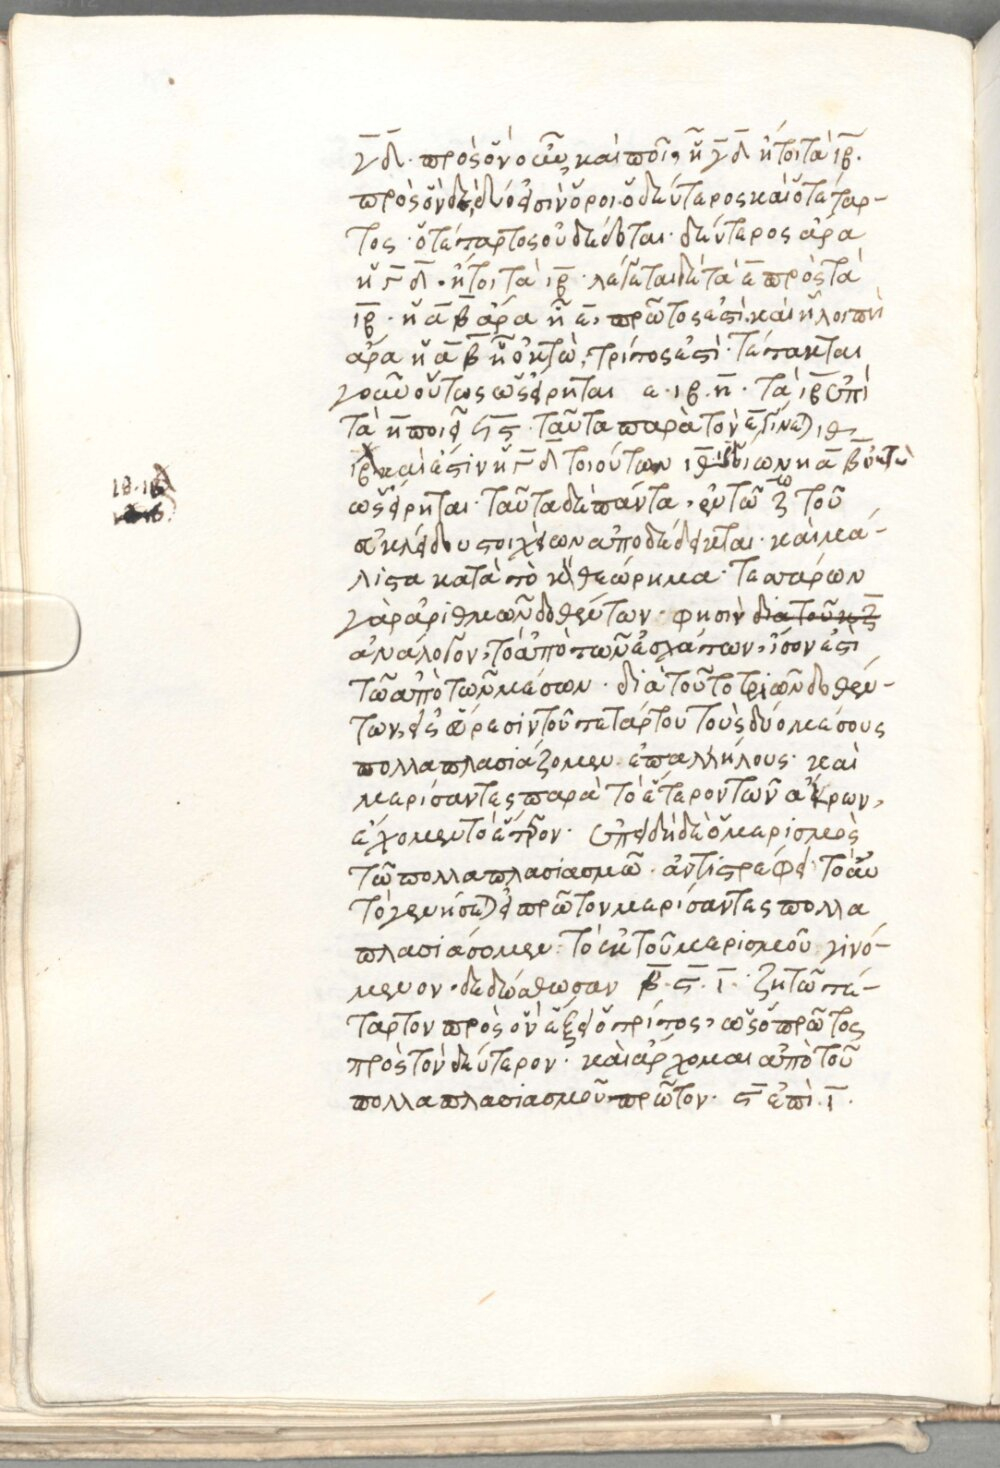 γ̅δ̅. πρὸς ὃν ὁ καὶ ποι ἡ γ̅δ̅ ἤτοι τὰ ιβ̅.
πρὸς ὃν δὲ, δύο εἰσὶν ὅροι. ὁ δεύτερος καὶ ὁ τέταρ-
τος. ὁ τέταρτος οὐ δέδοται. δεύτερος ἄρα
ἡ γ̅δ̅. ἤτοι τὰ ιβ̅. λέγεται δὲ τὰ ε̅ πρὸς τὰ
ιβ̅. ἡ α̅β̅ ἄρα ἢ ε̅, πρῶτος ἐστὶ. καὶ ἡ λοιπὴ
ἄρα ἡ α̅β̅ ἢ ὀκτὼ, τρίτος ἐστὶ. τέτακται
γοῦν οὕτως ὡς εἴρηται ε. ιβ. η̅. τὰ ιβ̅ ἐπὶ
τὰ η̅ ποιεῖ ϟϛ̅. ταῦτα παρὰ τὸν ε̅, γίνεται ιθ
καὶ ἐστὶν ἡ γ̅δ̅ τοιούτων ιθ οἵων ἡ α̅β̅ ὀκτὼ
ὡς εἴρηται. ταῦτα δὲ πάντα, ἐν τῷ ζω τοῦ
εὐκλείδου στοιχείων ἀποδέδεικται. καὶ μά-
λιστα κατὰ τὸ θεώρημα. τεσσάρων
γὰρ ἀριθμῶν δοθέντων. φησὶν διὰ τοῦ κζ̅
ἀνάλογον, τὸ ἀπὸ τῶν ἐσχάτων, ἴσον ἐστὶ
τῷ ἀπὸ τῶν μέσων. διὰ τοῦτο τριῶν δοθέν-
των, εἰς εὕρεσιν τοῦ τετάρτου τοὺς δύο μέσους
πολλαπλασιάζομεν ἐπαλλήλους. καὶ
μερίσαντες παρὰ τὸ ἕτερον τῶν ἄκρων,
ἔχομεν τὸ ἕτερον. ἐπειδὴ δὲ ὁ μερισμὸς
τῷ πολλαπλασιασμῷ. ἀντιστρέφει. τὸ αὐ
τὸ γενήσεται εἰ πρῶτον μερίσαντες πολλα
πλασιάσομεν. τὸ ἐκ τοῦ μερισμοῦ γινό-
μενον. δεδόσθωσαν β̅. ϛ̅. ι̅. ζητῶ τέ-
ταρτον πρὸς ὃν ἕξει ὁ τρίτος, ὡς ὁ πρῶτος
πρὸς τὸν δεύτερον. καὶ ἄρχομαι ἀπὸ τοῦ
πολλαπλασιασμοῦ πρῶτον. ϛ̅ ἐπὶ. ι̅.